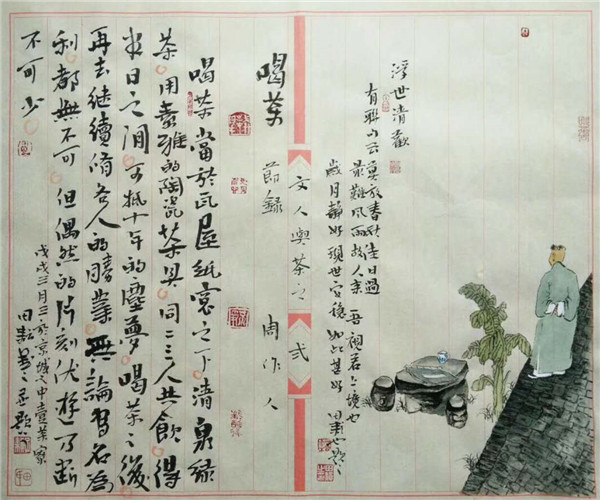 浮世清歡
莫放春秋佳日過
最難風雨故人來
歲月靜好現世安穩如此甚好
文人與茶之
貳
喝茶
節錄 周作人
喝茶當於瓦屋紙窗之下清泉綠
茶用素雅的陶瓷茶具同二三人共飲得
半日之閒可抵十年的塵夢喝茶之後
再去繼續修各人的勝業無論為名為
利都無不可但偶然的片刻優游乃斷
不可少
戊戌三月三於京城之中壹茶寮